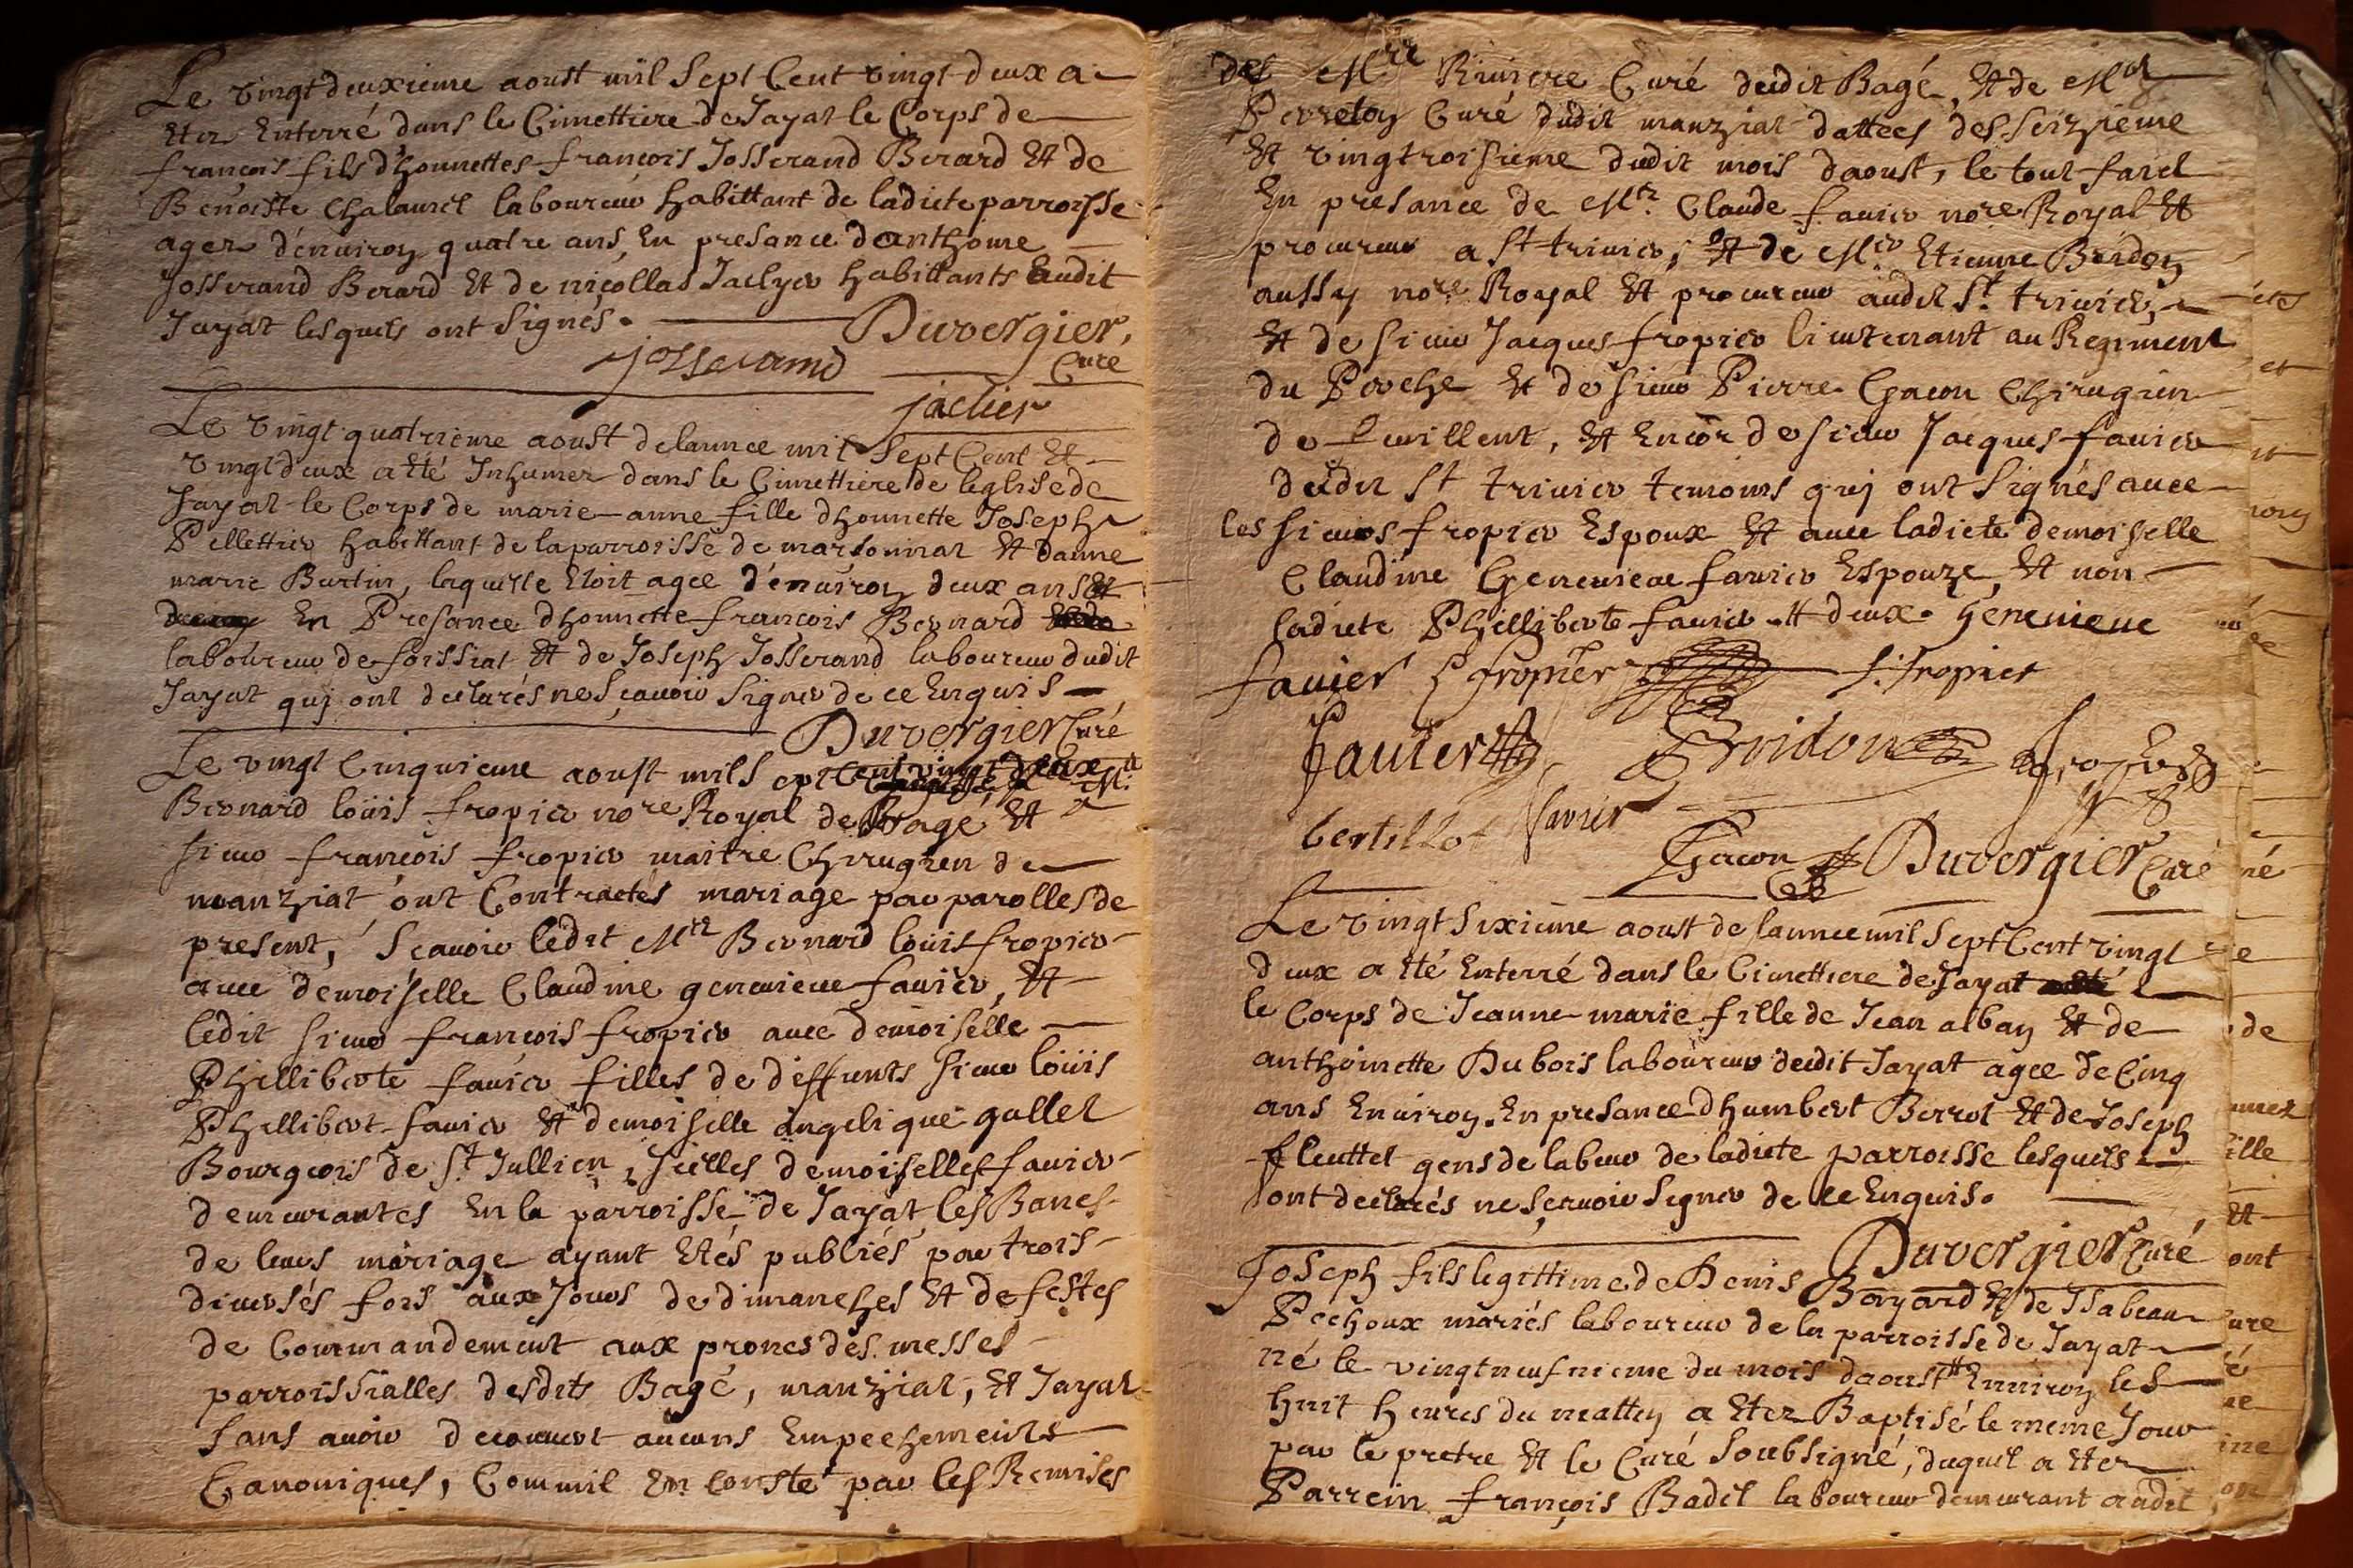 Le vingt deuxieme aoust mil sept Cent vingt deux a
étéz Enterré dans le Cimettiere de Jayat le Corps de
françois fils d'honnettes françois Josserand Berard Et de
Benoiste Chalauret laboureur habittant de ladicte parroisse
agez d'environ quatre ans, En presance d'anthoine
Josserand Berard Et de nicollas Jaclyer habittants audit
Jayat lesquels ont signés.
Duvergier,
Curé
Josserand
jaclier
Le vingt quatrieme aoust de lannee mil sept Cent Et
vingt deux a Eté Inhumez dans le Cimettiere de leglise de
Jayat le Corps de marie-anne fille dhonnette Joseph
Pellettier habittant de la parroisse de marsonnat Et danne
marie Burtin, laquelle Etoit agee d'environ deux ans Et
En Presance dhonnette françois Bernard
laboureur de foissiat Et de Joseph Josserand laboureur dudit
Jayat quj ont declarés ne sçavoir signer de ce Enquis
Duvergier Curé
Le vingt Cinquieme aoust mil sept Cent vingt deux Mr.
Bernard loüis fropier nore Royal de Bagé Et
sieur françois fropier maitre Chirugien de
manziat ont Contractés mariage par parolles de
present, Scavoir ledit Mre Bernard loüis fropier
avec demoiselle Claudine genevieve favier, Et
ledit sieur françois fropier avec demoiselle
Phelliberte favier filles de deffunts sieur loüis
Phellibert favier Et demoiselle angelique gallet
Bourgeois de St Jullien, jcelles demoiselles favier
demeurantes En la parroisse de Jayat, les Bancs
de leurs mariage ayant Etés publiés par trois
diversés fois aux Jours de dimanches Et de festes
de Commandement aux prones des messes
parroissialles desdits Bagé, manziat, Et Jayat
sans avoir decouvert aucuns Empechements
Canoniques, Comm'il En conste par les Remises
des Mre Riviere Curé dudit Bagé, Et de Mre
Perreton Curé dudit manziat dattées des seizieme
Et vingtroisieme dudit mois daoust, le tout faict
En presance de Mre. Claude favier nore Royal Et
procureur a St trivier, Et de Mre Etienne Bridon
aussy nore. Royal Et procureur audit St. trivier,
Et de sieur Jacques fropier lieutenant au Regiment
du Perche Et de sieur Pierre Gacon Chirugien
de Lewillent, Et Encor de sieur Jacques favier
dudit St trivier temoins quj ont signés avec
les sieurs fropier Espoux Et avec ladicte demoiselle
Claudine Genevieve favier Espouze, Et non
ladicte Phelliberte favier Et deux. genevieve
favier fropier f. fropier
favier Bridon fropier
bertillot favier
Gacon Duvergier Curé
Le vingt sixieme aoust de lannee mil sept Cent vingt
deux a Eté Enterré dans le Cimettiere de Jayat
le Corps de Jeanne marie fille de Jean alban Et de
anthoinette Dubois laboureur dudit Jayat agee de Cinq
ans Environ. En presance dhumbert Berrot Et de Joseph
fleuttet gens de labeur de ladicte parroisse lesquels
ont declarés ne sçavoir signer de ce Enquis.
Duvergier Curé
Joseph fils legittime de Denis Bayard Et de Isabeau
Pechoux mariés laboureur de la parroisse de Jayat
né le vingtneufnieme du mois daoust Environ les
huit heures du mattin a Etez Baptisé le meme Jour
par le pretre Et le Curé soubsigné, duquel a Etez
Parrein françois Badet laboureur demeurant audit